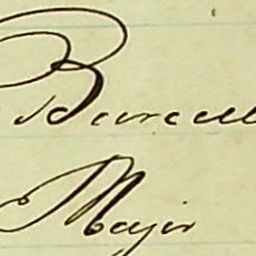 Burcell
Major